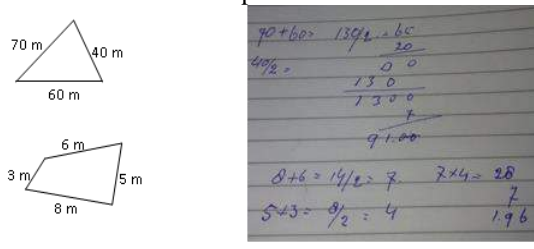 70 m
40 m
60 m
6 m
3 m
5 m
8 m
70+60= 130/2 = 65
40/2 = 20
0 0
1 3 0
1 3 0 0
7
9 1.00
8+6 = 14/2 = 7 7×4 = 28
7
5+3 = 8/2 = 4 1.96